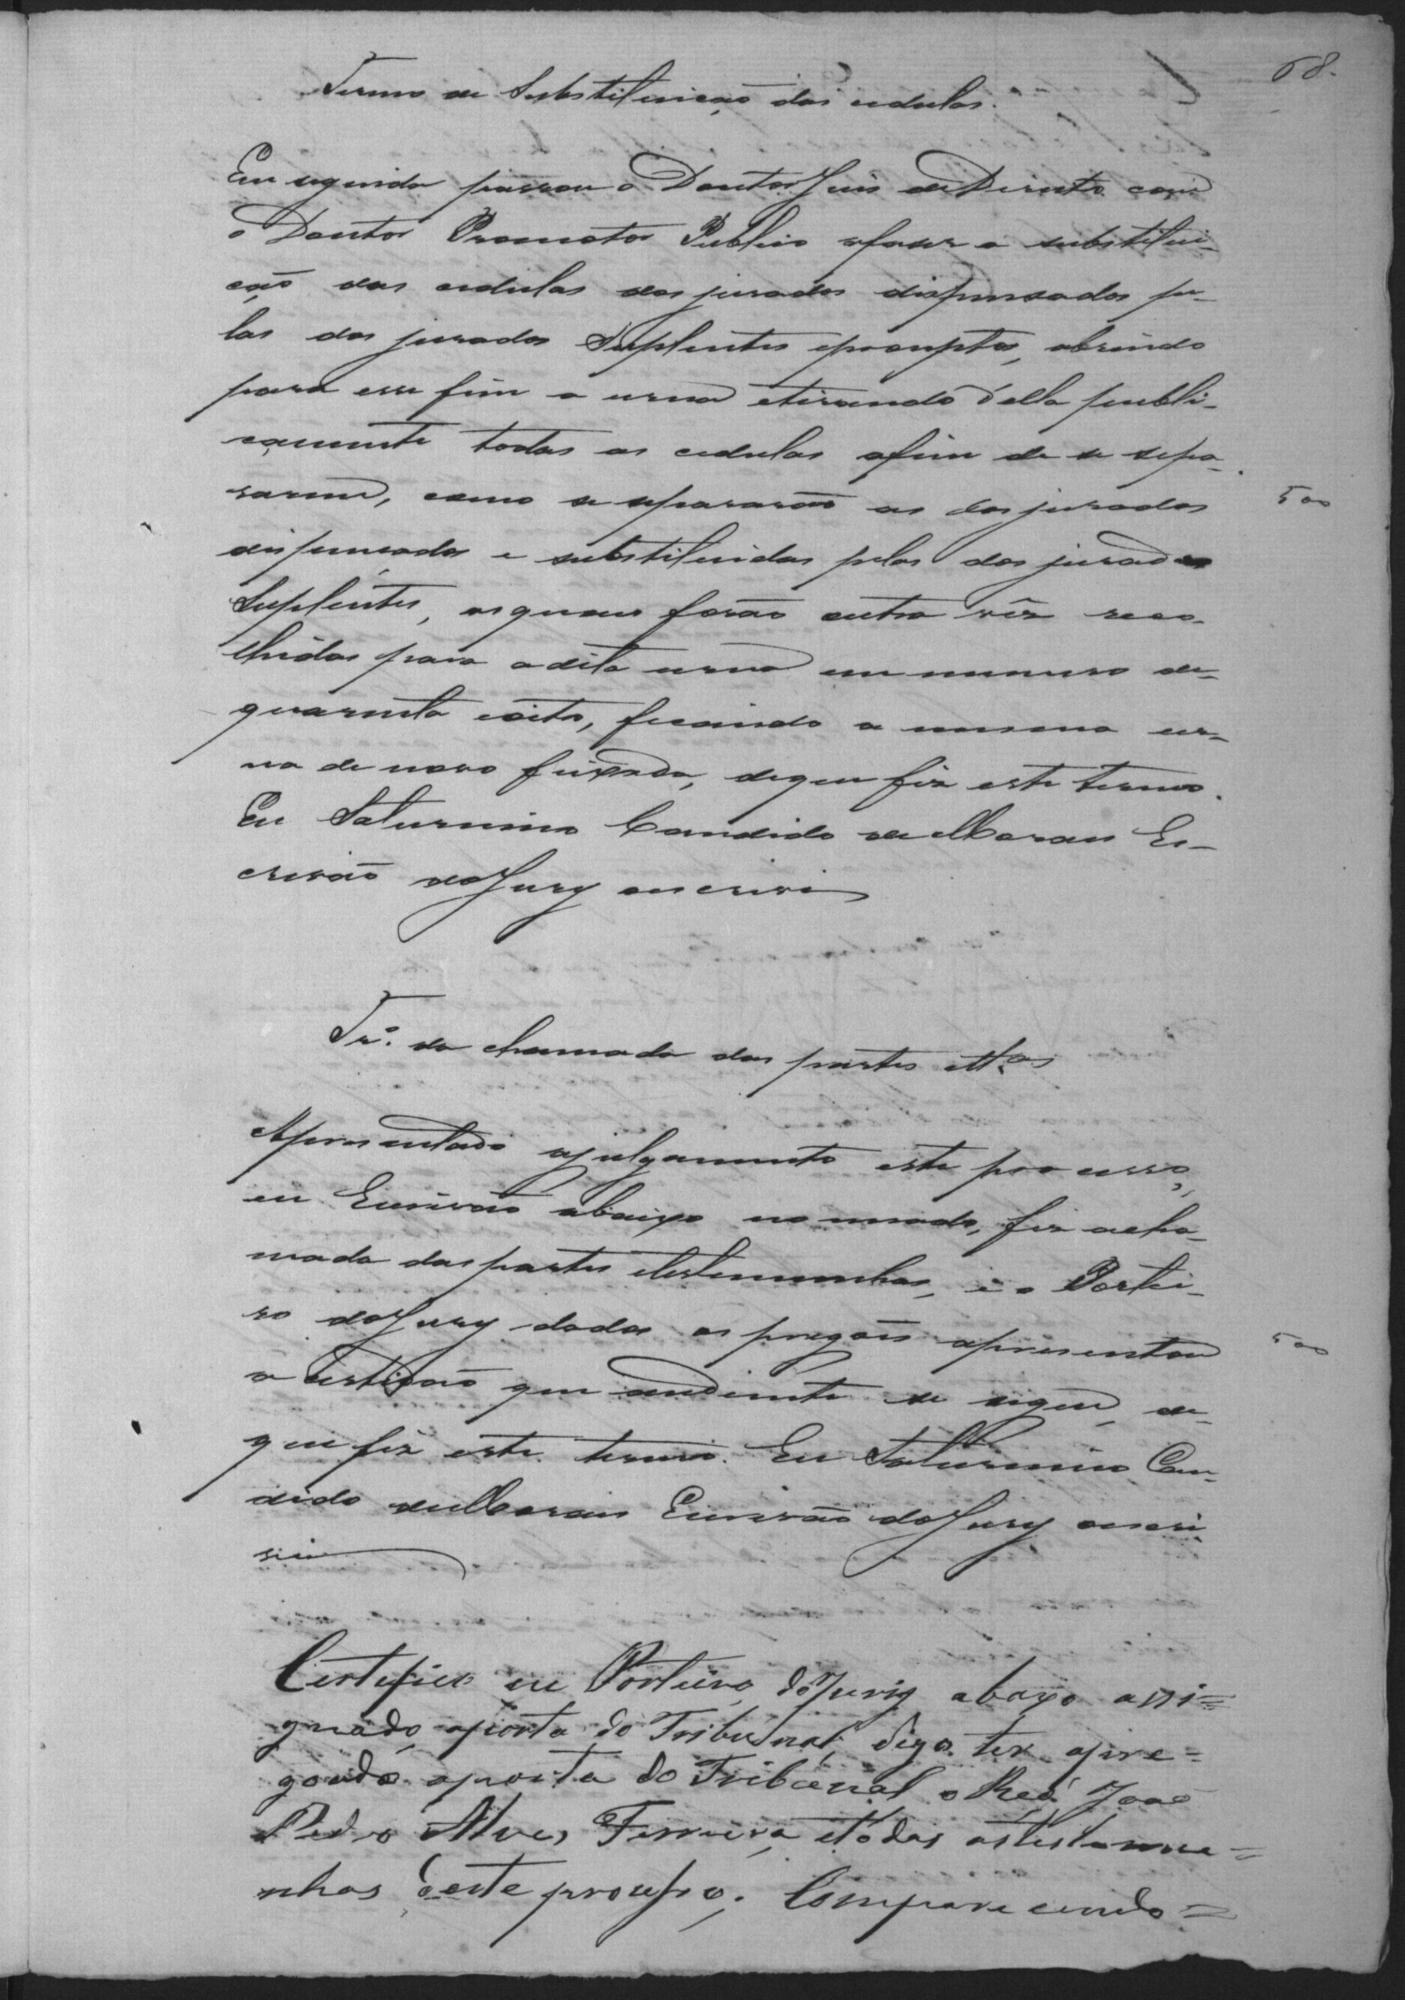 68.
Termo de Substituição das cedulas.
Em seguida passou o Doutor Juis de Direito com
o Doutor Promotor Publico afaser a substitui-
ção das cedulas dos jurados dispensados pe-
las dos jurados Suplentes epromptos, abrindo
para esse fim a urna etirando della publi-
camente todas as cedulas afim de se sepa-
rarem, como se separarão as dos jurados
500
dispensados e substituidas pelas dos jurados
Suplentes, as quaes forão outra vêz reco-
lhidas para a dita urna em numero de
quarenta eoito, ficando a mesma ur-
na de novo feixada, deque fiz este termo.
Eu Saturnino Candido de Moraes Es-
crivão do Jury oescrivi
Tr.º da chamada das partes ett.as
Apresentado ajulgamento este processo,
eu Escrivão abaixo nomeado, fiz acha-
mada das partes etestemunhas, e o Portei-
ro do Jury dados os pregões apresentou
500
a Certidão que audiente se segue, de
que fiz este termo. Eu Saturnino Can-
dido de Moraes Escrivão do Jury oescri
vi
Certifico eu Porteiro do Jury abaxo assi=
gnado, aporta do Tribunal, digo ter apre=
goado aporta do Tribunal o Reo João
Pedro Alves Ferreira, etodas astestemu=
nhas deste processo; Comparecendo=